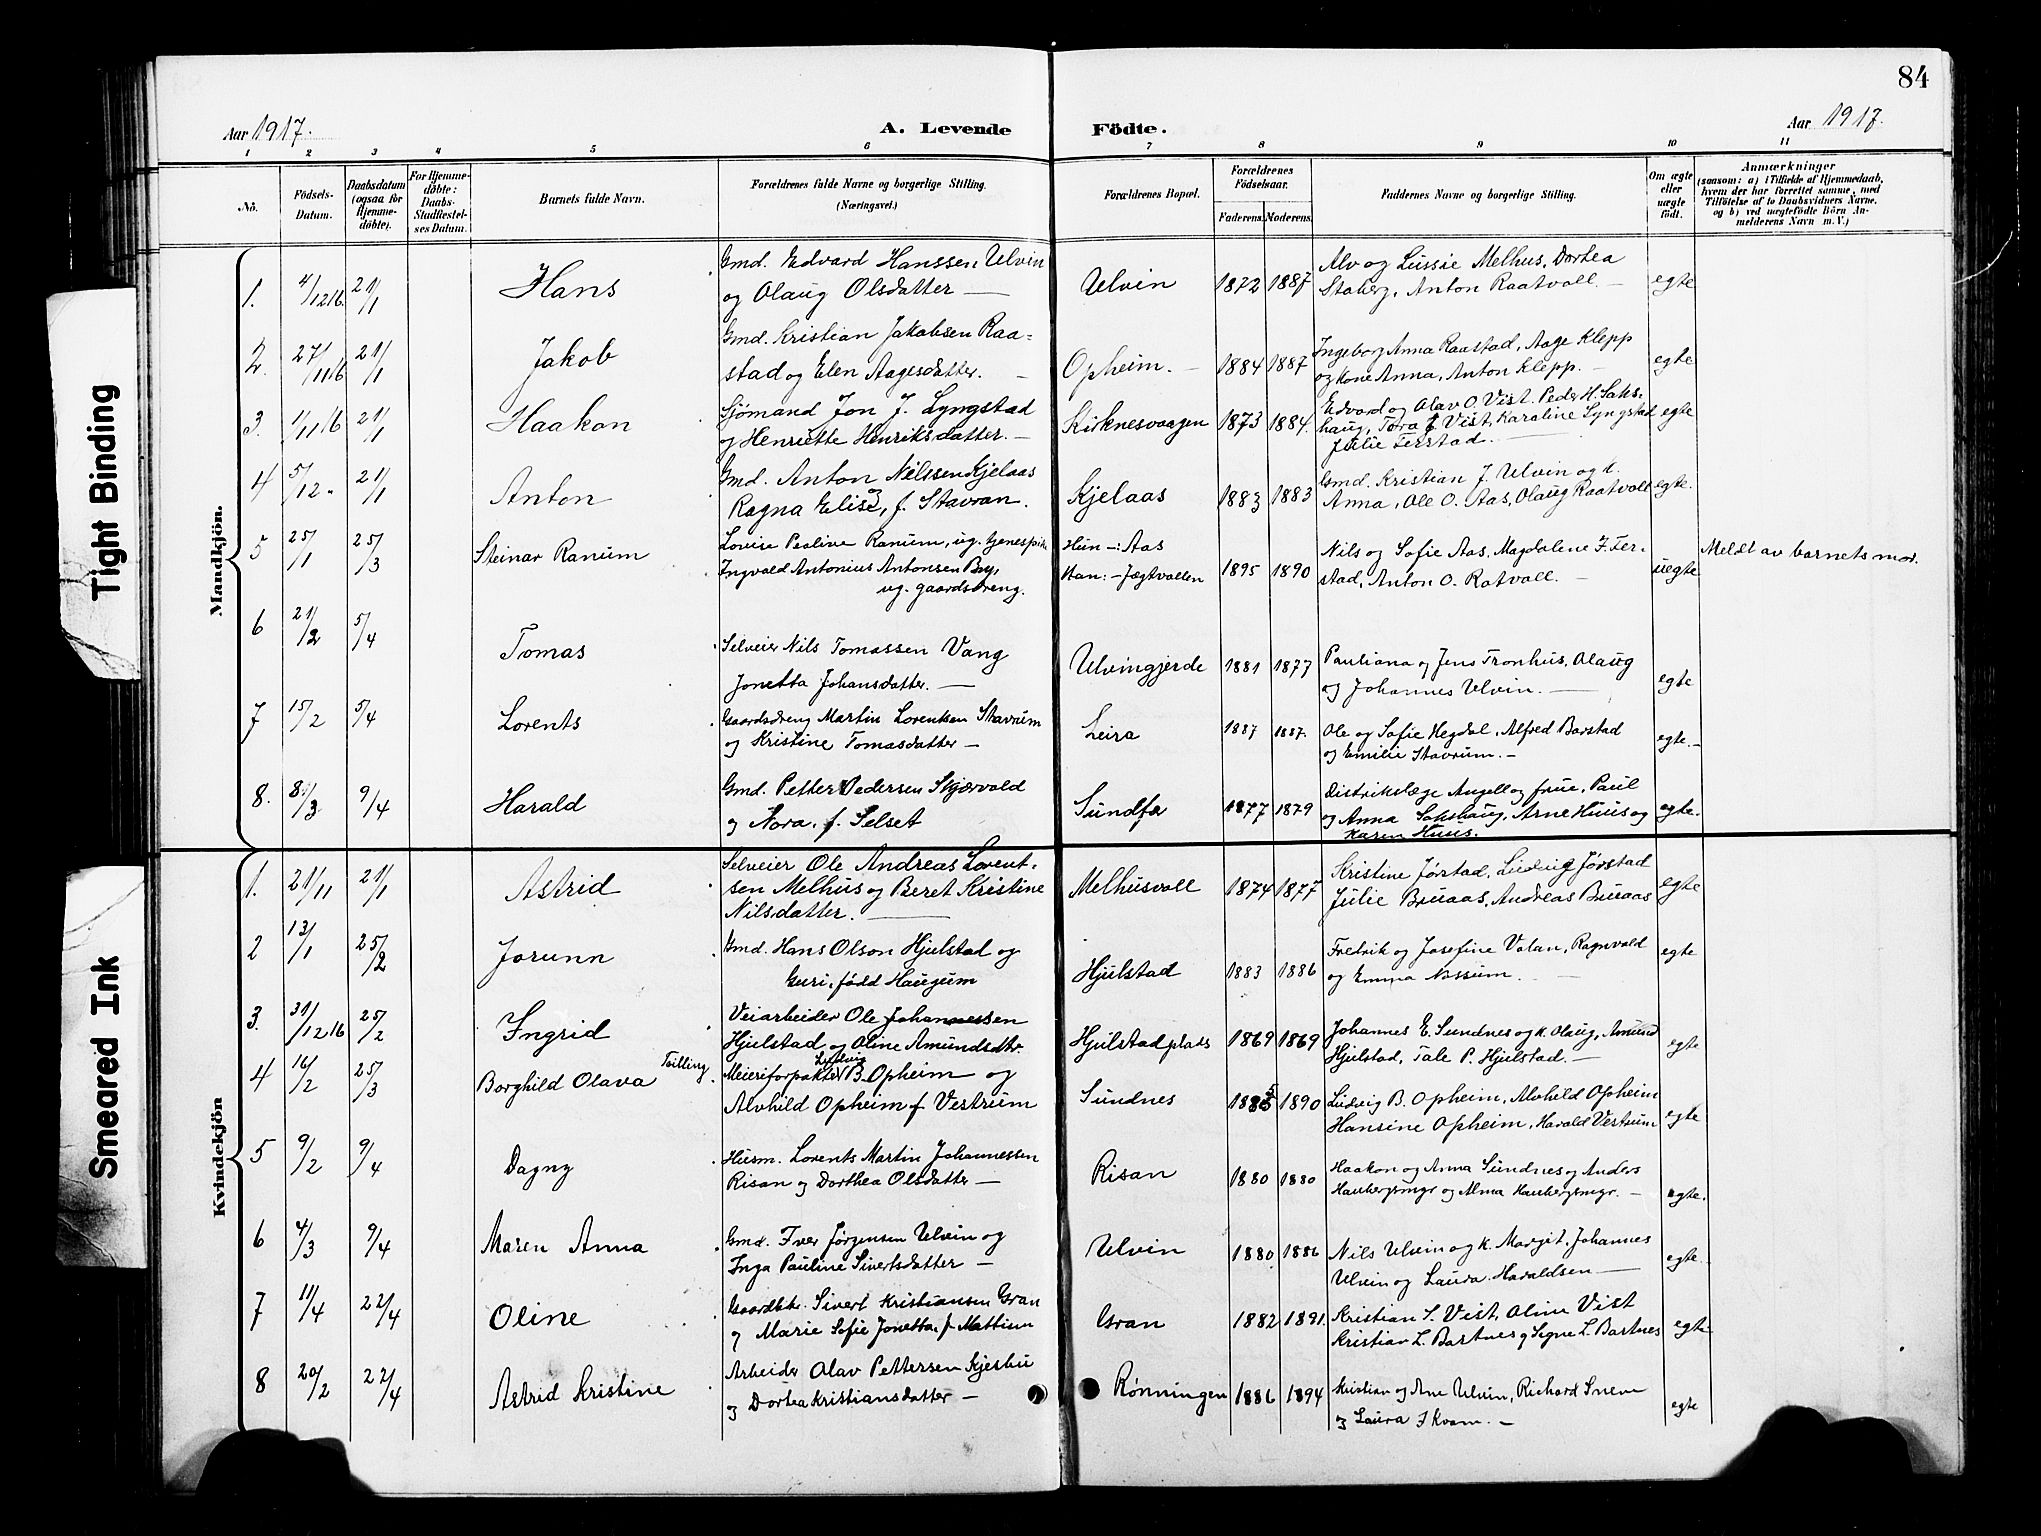 84
Aar 1917.
A. Levende Födte.
Aar 1917.
1 2 3 4 5 6 7 8 9 10 11
No.
Födsels-Datum.
Daabsdatum (ogsaa for Hjemmedøbte).
For Hjemmedøbte: Daabs-Stadfæstelses Datum.
Barnets fulde Navn.
Forældrenes fulde Navne og borgerlige Stilling.
(Næringsvei.)
Forældrenes Bopæl.
Forældrenes Födselsaar.
Faderens. Moderens.
Faddernes Navne og borgerlige Stilling.
Om ægte eller uægte født.
Anmærkninger
(saasom: a) i Tilfælde af Hjemmedaab,
hvem der har forrettet samme, med
Tilföielse af to Daabsvidners Navne,
og b) ved uægtefödte Börn An-
melderens Navn m. V.)
Tight Binding
Smeared Ink
Mandkjön.
1. 4/12 16. 21/1 Hans
Gmd. Edvard Hanssen Ulvin
og Olaug Olsdatter —
Ulvin 1872 1887
Alv og Lussie Melhus, Dortea
Staberg, Anton Raatvoll. —
egte
2. 27/11 16 21/1 Jakob
Gmd. Kristian Jakobsen Raa=
stad og Elen Aagesdatter. —
Opheim. — 1884 1887
Ingeborg Anna Raastad, Aage Klepp
og kone Anna, Anton Klepp. —
egte
3. 1/11 16 21/1 Haakon
Sjømand Jon J. Lyngstad
og Henriette Henriksdatter. —
Kirknesvaagen 1873 1884.
Edvard og Olav O. Vist. Peder H. Saks-
haug, Tora Vist, Karaline Lyngstad
Julie Ferstad. —
egte
4 5/12 " 21/1 Anton
Gmd. Anton Nilssen Kjelaas
og
Ragna Elise, f. Stavran.
Kjelaas 1883 1883
Gmd. Kristian J. Ulvin og k.
Anna, Ole O. Aas, Olaug Raatvoll
egte.
5 25/1 25/3 Steinar Ranum
Lovise Pauline Ranum, ug. tjenespike
Ingvald Antonius Antonsen By,
ug. gaardsdreng.
Hun —: Aas
Han: — Jægtvollen 1895 1890
Nils og Sofie Aas, Magdalene J. Fer-
stad, Anton O. Ratvoll. —
uegte
Meldt av barnets mor.
6 21/2 5/4 Tomas
Selveier Nils Tomassen Vang
Jonetta Johansdatter. —
Ulvingjerde 1881 1877
Pauliana og Jens Tronhus, Olaug
og Johannes Ulvin. —
egte
7 15/2 5/4 Lorents
Gaardsdreng Martin Lorentsen Stavrum
og Kristine Tomasdatter —
Leira 1887 1887.
Ole og Sofie Hegdal, Alfred Barstad
og Emilie Stavrum. —
egte. —
8. 8/3 9/4 Harald
Gmd. Petter Pedersen Skjærvold
og Nora, f. Selset
Sundfæ 1877 1879
Distriktslæge Angell og frue, Paul
og Anna Sakshaug, Arne Huus og
Karen Huus.
egte.
Kvindekjön
1. 21/11 21/1 Astrid
Selveier Ole Andreas Lorent-
sen Melhus og Beret Kristine
Nilsdatter. —
Melhusvoll 1874 1877
Kristine Jørstad, Ludvig Jørstad
Julie Bruaas, Andreas Bruaas
egte
2 13/1 25/2 Jorunn
Gmd. Hans Olson Hjulstad og
Guri, fødd Haugum
Hjulstad 1883 1886
Fredrik og Josefine Valan, Ragnvald
og Emma Nossum. —
egte
3. 31/12 16 25/2 Ingrid
Veiarbeider Ole Johannessen
Hjulstad og Oline Amundsdtr.
Hjulstadplads 1869 1869
Johannes E. Sundnes og k. Olaug, Amund
Hjulstad, Tale P. Hjulstad. —
egte
4 16/2 25/3 Borghild Olava Tvilling
Ludvig
Meieriforpakter B. Opheim og
Alvhild Opheim f. Vestrum
Sundnes 1885 1890
Ludvig B. Opheim, Alvhild Opheim
Hansine Opheim, Harald Vestrum
egte
5 9/2 9/4 Dagny
Husm. Lorents Martin Johannessen
Risan og Dorthea Olsdatter —
Risan 1880 1880
Haakon og Anna Sundnes og Anders
Haubergsmyr og Alma Haubergsmyr. —
egte.
6 4/3 9/4 Maren Anna
Gmd. Iver Jørgensen Ulvin og
Inga Pauline Sivertsdatter —
Ulvin 1880 1886
Nils Ulvin og k. Margit, Johannes
Ulvin og Laura Haraldsen —
egte
7 11/4 22/4 Oline
Gaardbr. Sivert Kristiansen Gran
og Marie Sofie Jonetta, f. Mattisen
Gran 1882 1891.
Kristian S. Vist, Oline Vist
Kristian L. Bartnes og Signe L. Bartnes
egte
8 20/2 22/4 Astrid Kristine
Arbeider Olav Pettersen Kjeshu
og Dortea Kristiansdatter —
Rønningen 1886 1894
Kristian og Ane Ulvin, Richard Snem
og Laura Kvam. —
egte